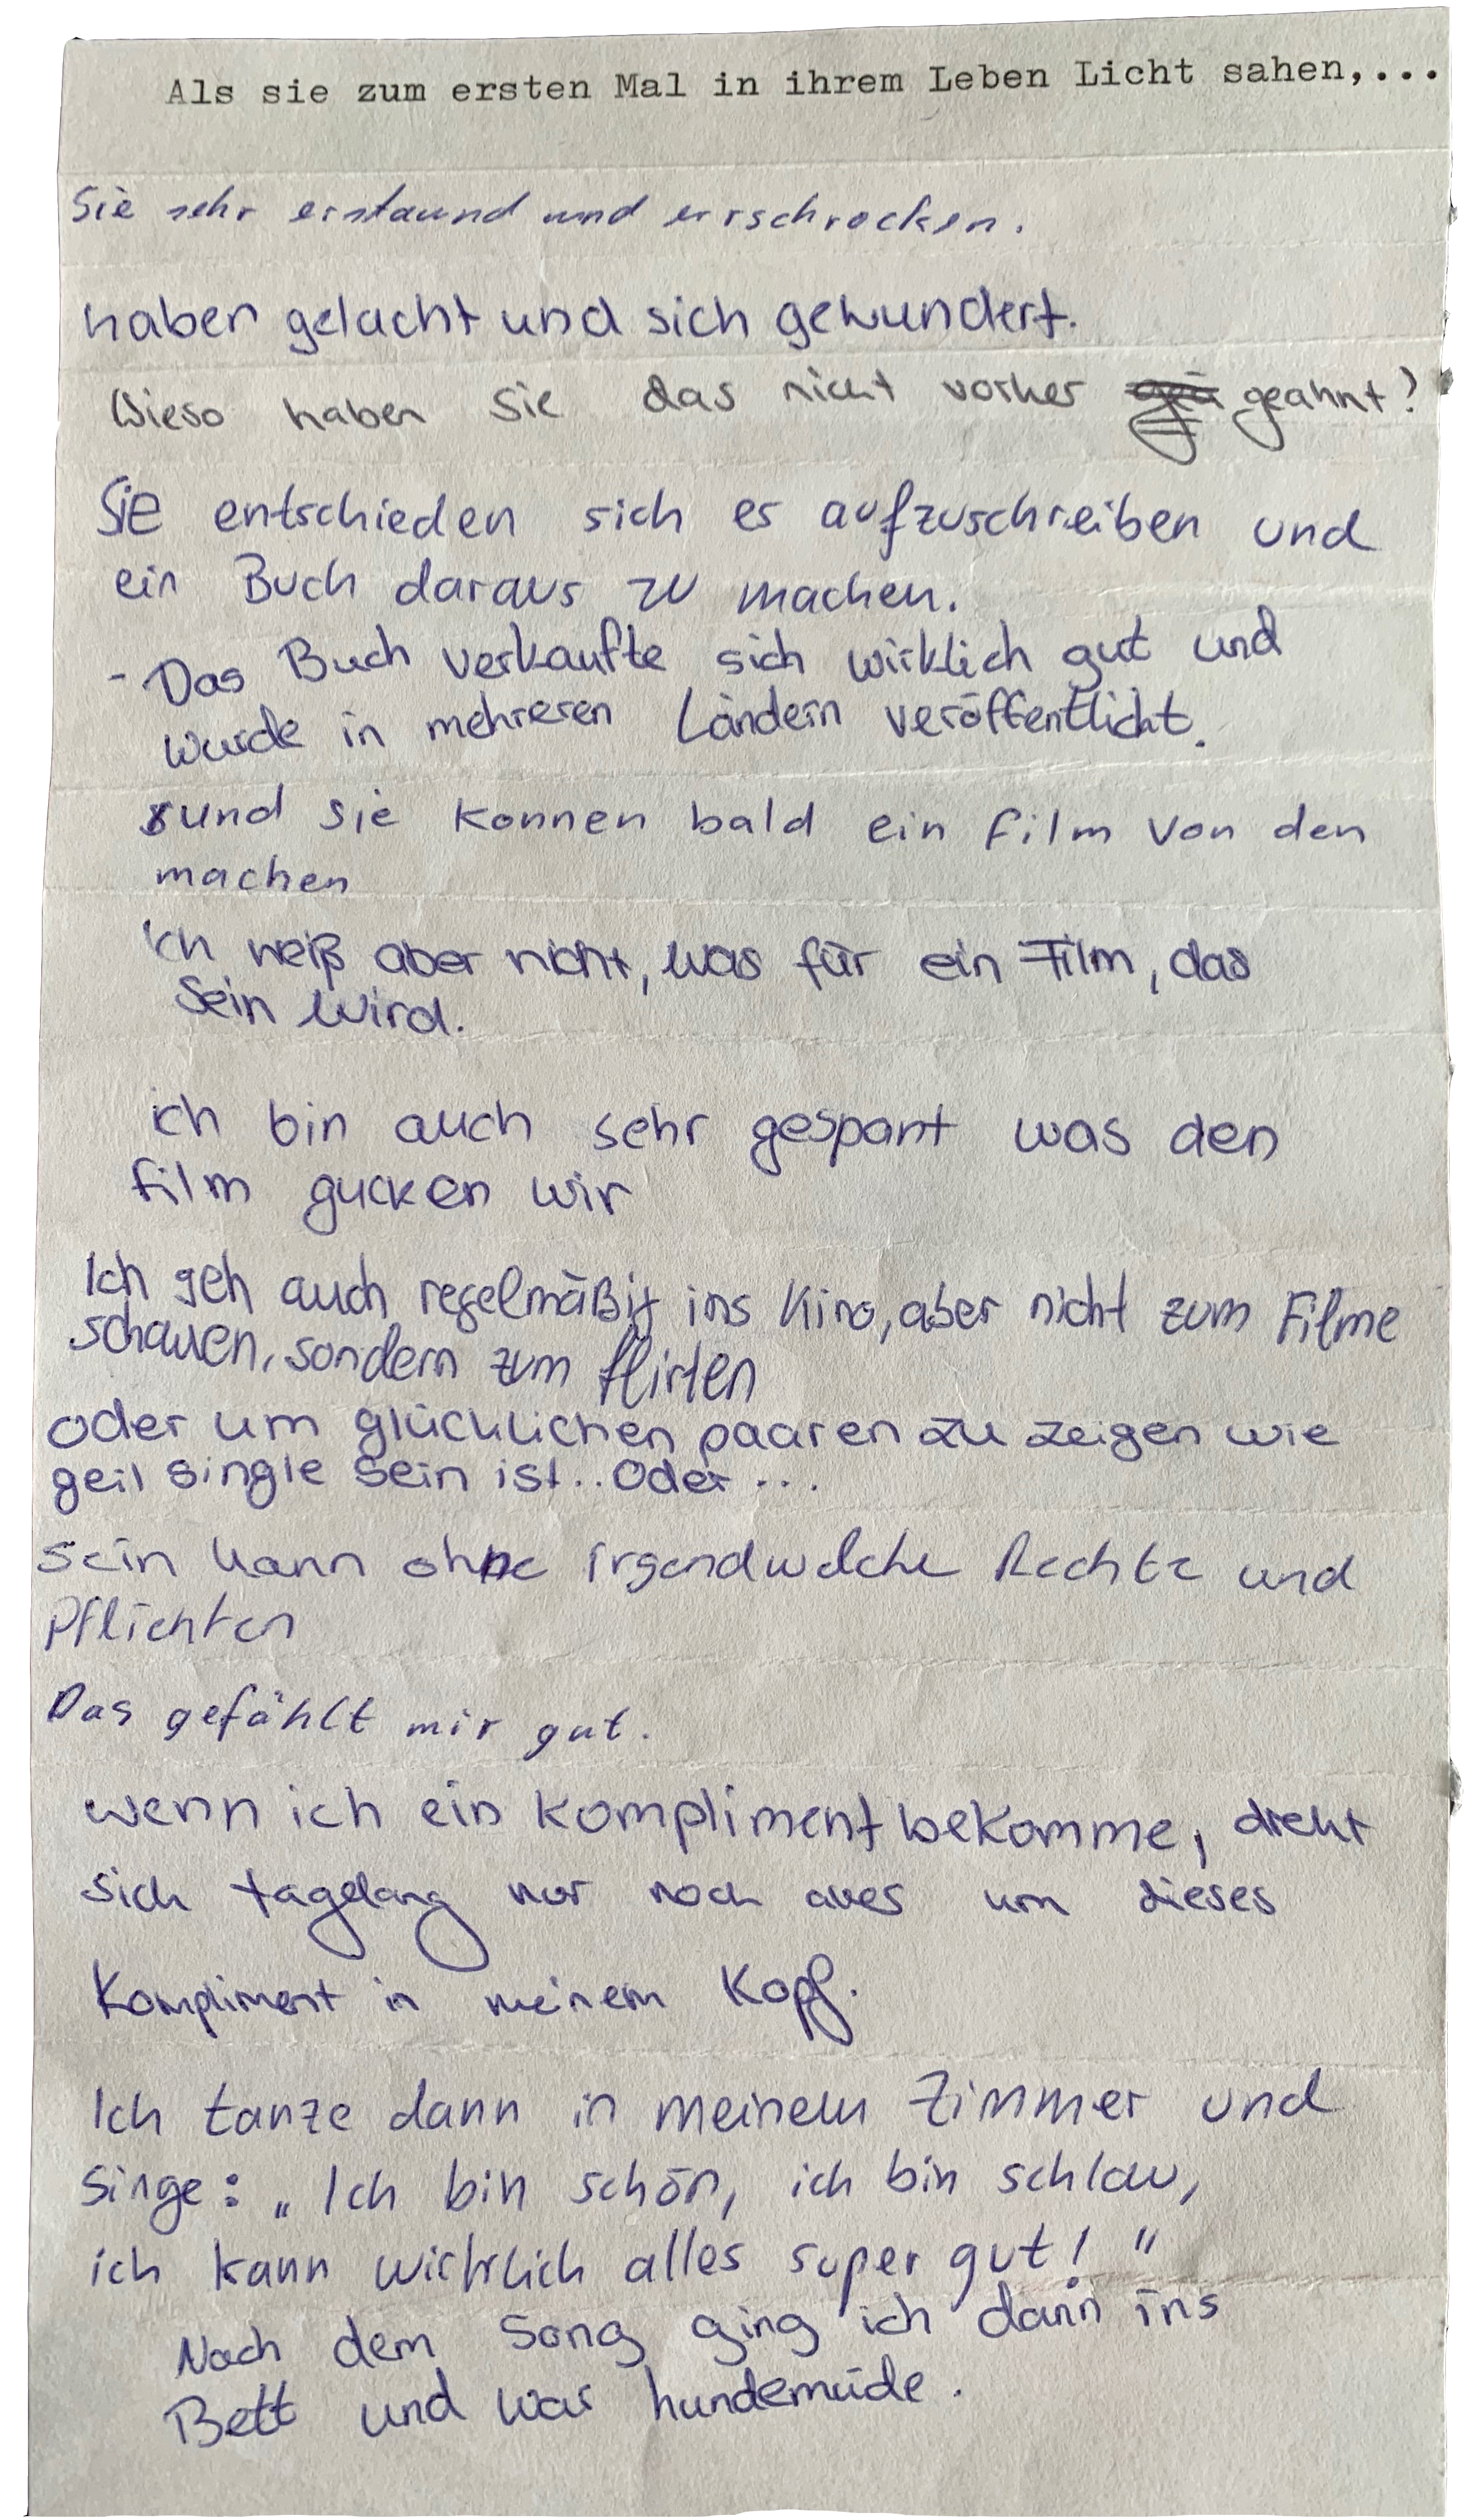 Als sie zum ersten Mal in ihrem Leben Licht sahen,...
Sie sehr erstaund und errschrocken.
haben gelacht und sich gewundert.
Wieso haben Sie das nicht vorher geahnt?
Sie entschieden sich es aufzuschreiben und
ein Buch daraus zu machen.
- Das Buch verkaufte sich wirklich gut und
wurde in mehreren Ländern veröffentlicht.
und sie konnen bald ein film von den
machen
Ich weiß aber nicht, was für ein Film, das
Sein wird.
ich bin auch sehr gespant was den
film gucken wir
Ich geh auch regelmäßig ins Kino, aber nicht zum Filme
schauen, sondern zum flirten
oder um glücklichen paaren zu zeigen wie
geil single sein ist.. oder...
sein kann ohne irgendwelche Rechte und
Pflichten
Das gefählt mir gut.
wenn ich ein Kompliment bekomme, dreht
sich tagelang nur noch alles um dieses
Kompliment in meinem Kopf.
Ich tanze dann in meinem Zimmer und
singe: „Ich bin schön, ich bin schlau,
ich kann wirklich alles super gut!"
Nach dem Song ging ich dann ins
Bett und war hundemüde.